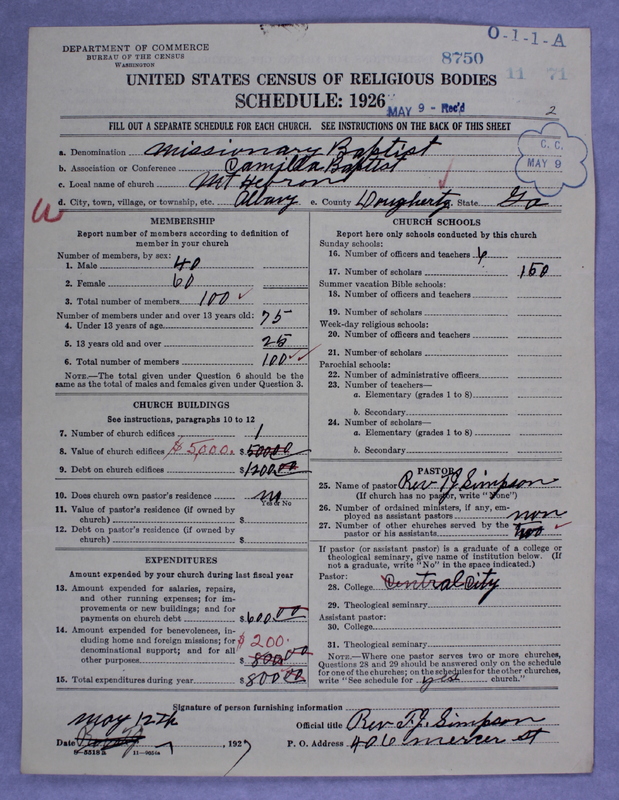 O-1-1-A
DEPARTMENT OF COMMERCE
BUREAU OF THE CENSUS
WASHINGTON
8750
11 71
UNITED STATES CENSUS OF RELIGIOUS BODIES
SCHEDULE: 1926
MAY 9 - Rec'd
2
FILL OUT A SEPARATE SCHEDULE FOR EACH CHURCH. SEE INSTRUCTIONS ON THE BACK OF THIS SHEET
C. C.
MAY 9
a. Denomination Missionary Baptist
b. Association or Conference Camilla Baptist
c. Local name of church Mt Hebron
d. City, town, village, or township, etc. Albany e. County Dougherty f. State Ga
MEMBERSHIP
Report number of members according to definition of
member in your church
Number of members, by sex:
1. Male 40
2. Female 60
3. Total number of members 100
Number of members under and over 13 years old:
4. Under 13 years of age 75
5. 13 years old and over 25
6. Total number of members 100
NOTE.—The total given under Question 6 should be the
same as the total of males and females given under Question 3.
CHURCH BUILDINGS
See instructions, paragraphs 10 to 12
7. Number of church edifices 1
8. Value of church edifices $5,000. $ 50000
9. Debt on church edifices $1200.00
10. Does church own pastor's residence no
Yes or No
11. Value of pastor's residence (if owned by
church) $
12. Debt on pastor's residence (if owned by
church) $
EXPENDITURES
Amount expended by your church during last fiscal year
13. Amount expended for salaries, repairs,
and other running expenses; for im-
provements or new buildings; and for
payments on church debt $600.00
14. Amount expended for benevolences, in-
cluding home and foreign missions; for
denominational support; and for all
other purposes $200. $ 800.00
15. Total expenditures during year $800.00
CHURCH SCHOOLS
Report here only schools conducted by this church
Sunday schools:
16. Number of officers and teachers 6
17. Number of scholars 150
Summer vacation Bible schools:
18. Number of officers and teachers
19. Number of scholars
Week-day religious schools:
20. Number of officers and teachers
21. Number of scholars
Parochial schools:
22. Number of administrative officers
23. Number of teachers—
a. Elementary (grades 1 to 8)
b. Secondary
24. Number of scholars—
a. Elementary (grades 1 to 8)
b. Secondary
PASTOR
25. Name of pastor Rev. T.J. Simpson
(If church has no pastor, write "None")
26. Number of ordained ministers, if any, em-
ployed as assistant pastors non
27. Number of other churches served by the
pastor or his assistants two
If pastor (or assistant pastor) is a graduate of a college or
theological seminary, give name of institution below. (If
not a graduate, write "No" in the space indicated.)
Pastor:
28. College Central City
29. Theological seminary
Assistant pastor:
30. College
31. Theological seminary
NOTE.—Where one pastor serves two or more churches,
Questions 28 and 29 should be answered only on the schedule
for one of the churches; on the schedules for the other churches,
write "See schedule for yes church."
Signature of person furnishing information
May 12th
Official title Rev. T.J. Simpson
Date 7, 1927
P. O. Address 406 Mercer st
8-5518a 11-9651a